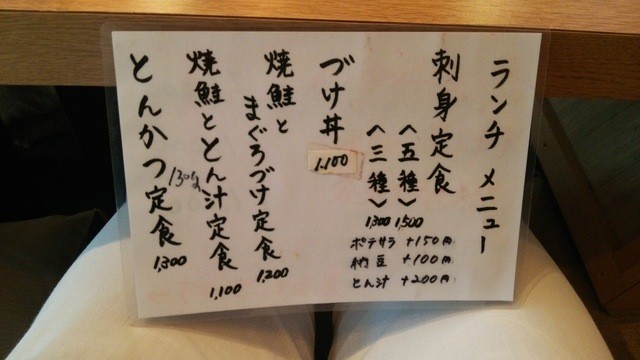 ランチ メニュー
刺身定食
〈五種〉 1,500
〈三種〉 1,300
ポテサラ +150円
納豆 +100円
とん汁 +200円
づけ丼 1,100
焼鮭と
まぐろづけ定食 1,200
焼鮭ととん汁定食 1,100
とんかつ定食 1,300
130g